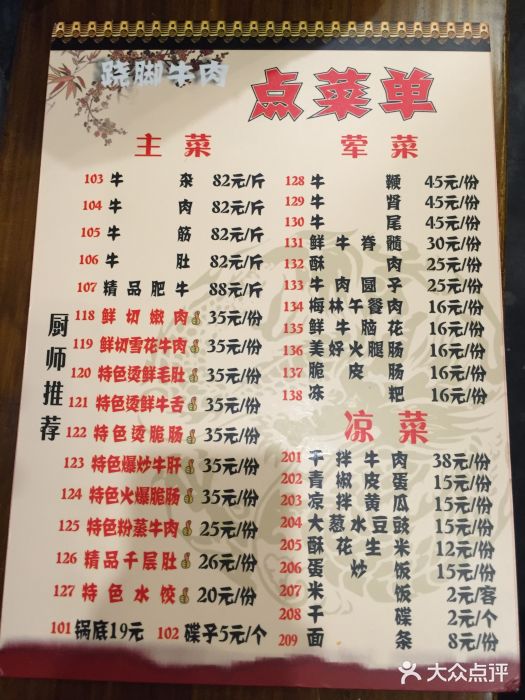 跷脚牛肉
点菜单
主菜
103 牛杂 82元/斤
104 牛肉 82元/斤
105 牛筋 82元/斤
106 牛肚 82元/斤
107 精品肥牛 88元/斤
厨师推荐
118 鲜切嫩肉 35元/份
119 鲜切雪花牛肉 35元/份
120 特色烫鲜毛肚 35元/份
121 特色烫鲜牛舌 35元/份
122 特色烫脆肠 35元/份
123 特色爆炒牛肝 35元/份
124 特色火爆脆肠 35元/份
125 特色粉蒸牛肉 25元/份
126 精品千层肚 26元/份
127 特色水饺 20元/份
101 锅底19元 102 碟子5元/个
荤菜
128 牛鞭 45元/份
129 牛肾 45元/份
130 牛尾 45元/份
131 鲜牛脊髓 30元/份
132 酥肉 25元/份
133 牛肉圆子 25元/份
134 梅林午餐肉 16元/份
135 鲜牛脑花 16元/份
136 美好火腿肠 16元/份
137 脆皮肠 16元/份
138 冻粑 16元/份
凉菜
201 干拌牛肉 38元/份
202 青椒皮蛋 15元/份
203 凉拌黄瓜 15元/份
204 大葱水豆豉 15元/份
205 酥花生米 12元/份
206 蛋炒饭 15元/份
207 米饭 2元/客
208 干碟 2元/个
209 面条 8元/份
大众点评